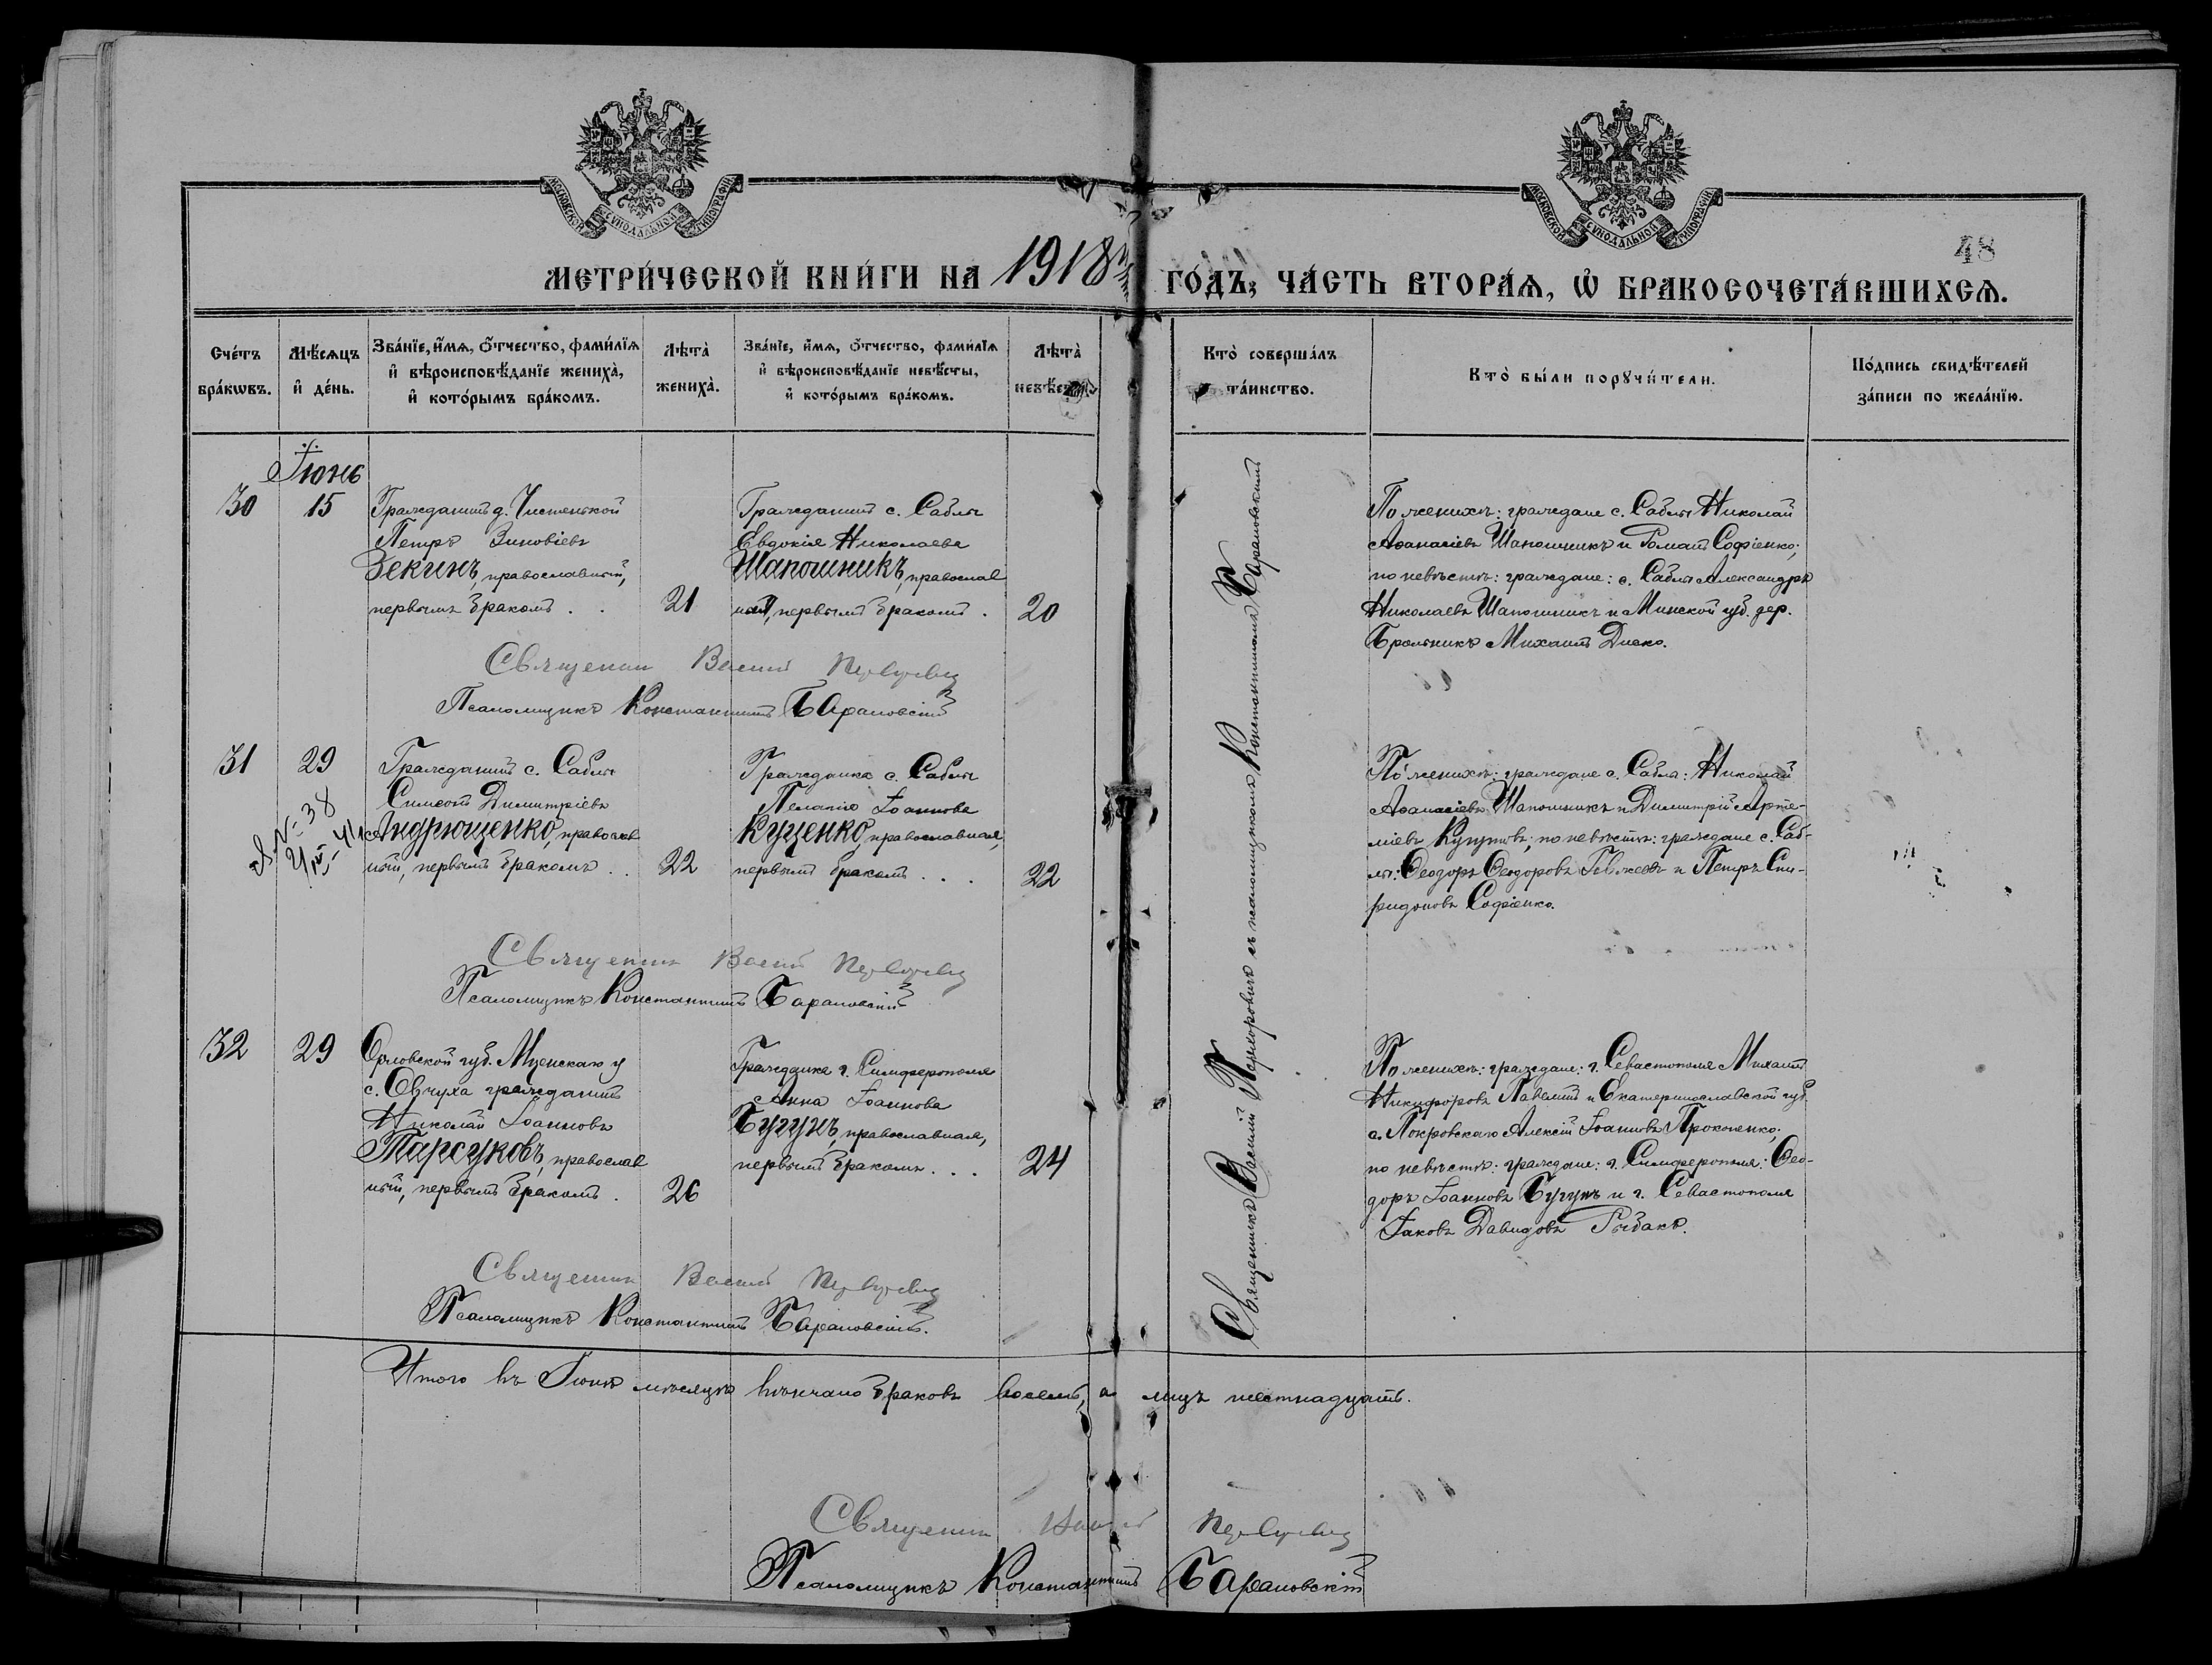 МОСКОВСКОЙ СѴНОДАЛЬНОЙ ТИПОГРАФІИ
МОСКОВСКОЙ СѴНОДАЛЬНОЙ ТИПОГРАФІИ
48
МЕТРИ́ЧЕСКОЙ КНИ́ГИ НА 1918й ГО́ДЪ, ЧА́СТЬ ВТОРА́Ѧ, Ѡ҆ БРАКОСОЧЕТА́ВШИХСѦ.
Сче́тъ бра́кѡвъ.
Мѣ́сѧцъ и҆ де́нь.
Зва́нїе, и҆́мѧ, ѻ҆́тчество, фами́лїѧ
и҆ вѣроисповѣ́данїе жениха̀,
и҆ кото́рымъ бра́комъ.
Лѣта̀ жениха̀.
Зва́нїе, и҆́мѧ, ѻ҆́тчество, фами́лїѧ
и҆ вѣроисповѣ́данїе невѣ́сты,
и҆ кото́рымъ бра́комъ.
Лѣта̀
Кто̀ соверша́лъ та́инство.
Кто̀ бы́ли порꙋчи́тели.
По́дпись свидѣ́телей
за́писи по жела́нїю.
Іюнь
30
15
Гражданинъ д. Чистенькой
Петръ Зиновіевъ
Зекинъ, православный,
первымъ бракомъ . .
21
с. Саблы
Евдокія Николаева
Шапошникъ, православ
ная, первымъ бракомъ .
20
По женихѣ: граждане с. Саблы Николай
Аѳанасіевъ Шапошникъ и Романъ Софіенко;
по невѣстѣ: граждане: с. Саблы Александръ
Николаевъ Шапошникъ и Минской губ. дер.
Михаилъ
Священникъ
Псаломщикъ Константинъ Барановскій
31
29
№ 38
Гражданинъ с. Саблы
Симеонъ Димитріевъ
Андрющенко, православ
ный, первымъ бракомъ . .
22
Гражданка с. Саблы
Пелагія Іоаннова
Куценко, православная,
первымъ бракомъ . . .
22
По женихѣ: граждане с. Саблы: Николай
Аѳанасіевъ Шапошникъ и Димитрій Арте-
міевъ по невѣстѣ: граждане с. Саб-
лы: Ѳеодоръ Ѳеодоровъ и Петръ Спи-
ридоновъ Софіенко.
Священникъ
Псаломщикъ Константинъ Барановскій
32
29
Орловской губ. Мценскаго у
с. гражданинъ
Николай Іоанновъ
Тарсуковъ, православ
ный, первымъ бракомъ .
26
Гражданка г. Симферополя
Анна Іоаннова
Бугунъ, православная,
первымъ бракомъ . . .
24
По женихѣ: граждане: г. Севастополя Михаилъ
Никифоровъ и Екатеринославской губ.
с. Покровскаго Алексій Іоанновъ Прокопенко;
по невѣстѣ: граждане: г. Симферополя: Ѳео-
доръ Іоанновъ Бугунъ и г. Севастополя
Іаковъ Давидовъ Рыбакъ.
Священникъ
Псаломщикъ Константинъ Барановскій.
Священникъ Василій съ псаломщикомъ Константиномъ Барановскимъ
Итого въ Іюнѣ мѣсяцѣ вѣнчано браковъ восемь, а лицъ шестнадцать.
Священникъ
Псаломщикъ Константинъ Барановскій